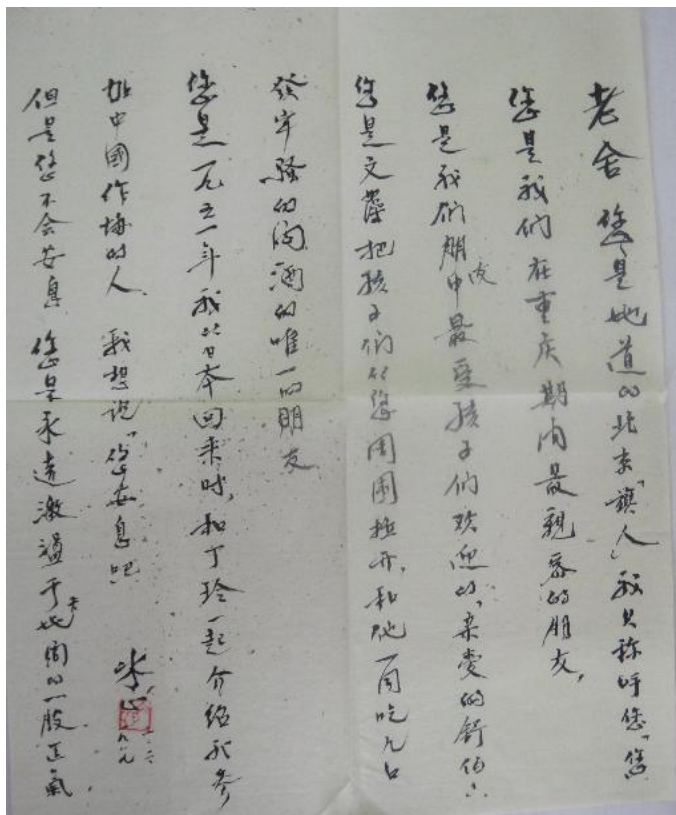 老舍 您是地道的北京“旗人”我只称呼您“您
您是我们在重庆期间最亲密的朋友，
您是我们朋友中最受孩子们欢迎的，“亲爱的舒伯”
您是文藻把孩子们从您周围推开，和他一同吃几口
发牢骚的闷酒的唯一的朋友
您是一九五一年我从日本回来时，和丁玲一起介绍我参
加中國作协的人。我想说“您安息吧
但是您不会安息 您是永远激盪于天地间的一股正氣
冰心